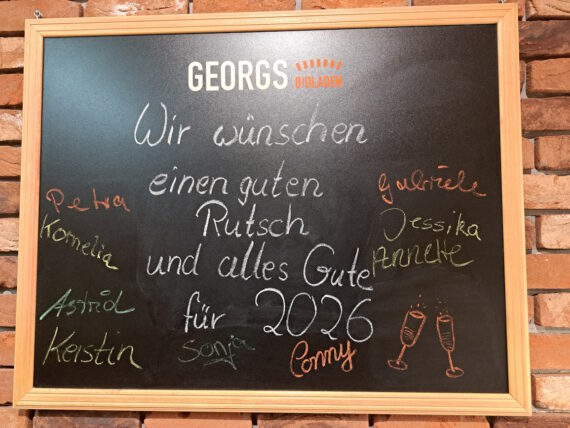 GEORGS BIOLADEN
Wir wünschen
einen guten
Rutsch
und alles Gute
für 2026
Petra
Kornelia
Astrid
Kerstin
Sonja
Conny
Gabriele
Jessika
Annette